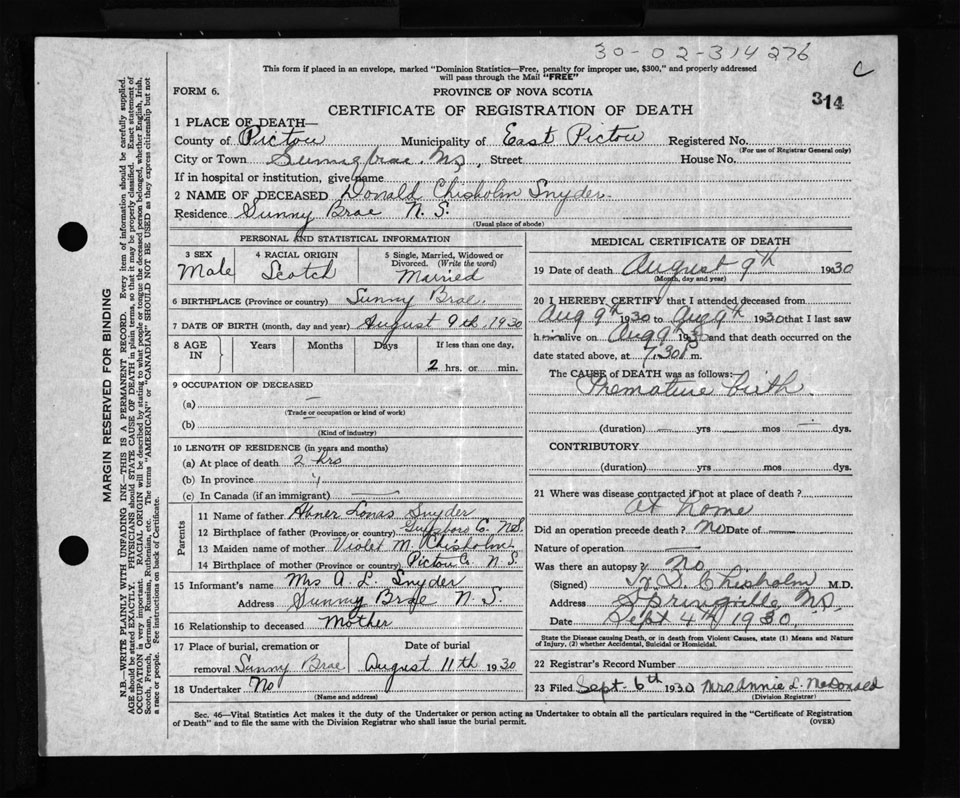 30-02-314276
C
This form if placed in an envelope, marked "Dominion Statistics—Free, penalty for improper use, $300," and properly addressed
will pass through the Mail "FREE"
FORM 6.
PROVINCE OF NOVA SCOTIA
314
CERTIFICATE OF REGISTRATION OF DEATH
1 PLACE OF DEATH—
County of Pictou Municipality of East Pictou Registered No.
(For use of Registrar General only)
City or Town Sunnybrae. NS, Street House No.
If in hospital or institution, give name
2 NAME OF DECEASED Donald Chisholm Snyder.
Residence Sunny Brae N. S.
(Usual place of abode)
PERSONAL AND STATISTICAL INFORMATION
3 SEX
Male
4 RACIAL ORIGIN
Scotch
5 Single, Married, Widowed or
Divorced. (Write the word)
Married
6 BIRTHPLACE (Province or country) Sunny Brae.
7 DATE OF BIRTH (month, day and year) August 9th, 1930
8 AGE
IN
Years
Months
Days
If less than one day,
2 hrs. or min.
9 OCCUPATION OF DECEASED
(a) —
(Trade or occupation or kind of work)
(b)
(Kind of industry)
10 LENGTH OF RESIDENCE (in years and months)
(a) At place of death 2 hrs
(b) In province "
(c) In Canada (if an immigrant) —
Parents
11 Name of father Abner Lonas Snyder
12 Birthplace of father (Province or country) Guysboro C. N.S.
13 Maiden name of mother Violet M. Chisholm.
14 Birthplace of mother (Province or country) Pictou C. N. S.
15 Informant's name Mrs A. L. Snyder
Address Sunny Brae N. S.
16 Relationship to deceased Mother
17 Place of burial, cremation or
removal Sunny Brae
Date of burial
August 11th 1930
18 Undertaker No
(Name and address)
MEDICAL CERTIFICATE OF DEATH
19 Date of death August 9th 1930
(Month, day and year)
20 I HEREBY CERTIFY that I attended deceased from
Aug 9th 1930 to Aug 9th 1930 that I last saw
him alive on Aug 9th 1930 and that death occurred on the
date stated above, at 7.30 P m.
The CAUSE of DEATH was as follows:
Premature birth.
(duration) — yrs mos — dys.
CONTRIBUTORY
(duration) yrs mos dys.
21 Where was disease contracted if not at place of death?
At Home
Did an operation precede death? No Date of —
Nature of operation —
Was there an autopsy? No
(Signed) Chisholm M.D.
Address Springville, NS.
Date Sept 4th 1930.
State the Disease causing Death, or in death from Violent Causes, state (1) Means and Nature
of Injury, (2) whether Accidental, Suicidal or Homicidal.
22 Registrar's Record Number
23 Filed Sept. 6th 1930 Mrs Annie L. McDonald
(Division Registrar)
Sec. 46—Vital Statistics Act makes it the duty of the Undertaker or person acting as Undertaker to obtain all the particulars required in the "Certificate of Registration
of Death" and to file the same with the Division Registrar who shall issue the burial permit.
(OVER)
MARGIN RESERVED FOR BINDING
N.B.—WRITE PLAINLY WITH UNFADING INK—THIS IS A PERMANENT RECORD. Every item of information should be carefully supplied.
AGE should be stated EXACTLY. PHYSICIANS should STATE CAUSE OF DEATH in plain terms, so that it may be properly classified. Exact statement of
OCCUPATION is very important. RACIAL ORIGIN will be described by stating to what people or tongue the deceased person belonged, whether English, Irish,
Scotch, French, German, Russian, Ruthenian, etc. The terms "AMERICAN" or "CANADIAN" SHOULD NOT BE USED as they express citizenship but not
a race or people. See instructions on back of Certificate.